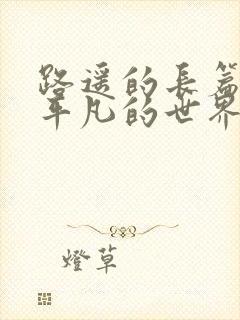 路遥的長篇
平凡的世界
燈草